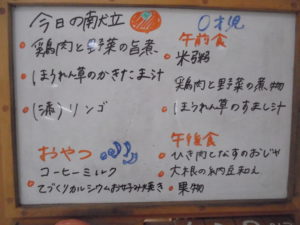 今日の献立
・鶏肉と野菜の旨煮
・ほうれん草のかきたま汁
・(添)リンゴ
おやつ
コーヒーミルク
・てづくりカルシウムお好み焼き
0才児
午前食
・米粥
鶏肉と野菜の煮物
・ほうれん草のすまし汁
午後食
・ひき肉となすのおじや
・大根の納豆和え
・果物